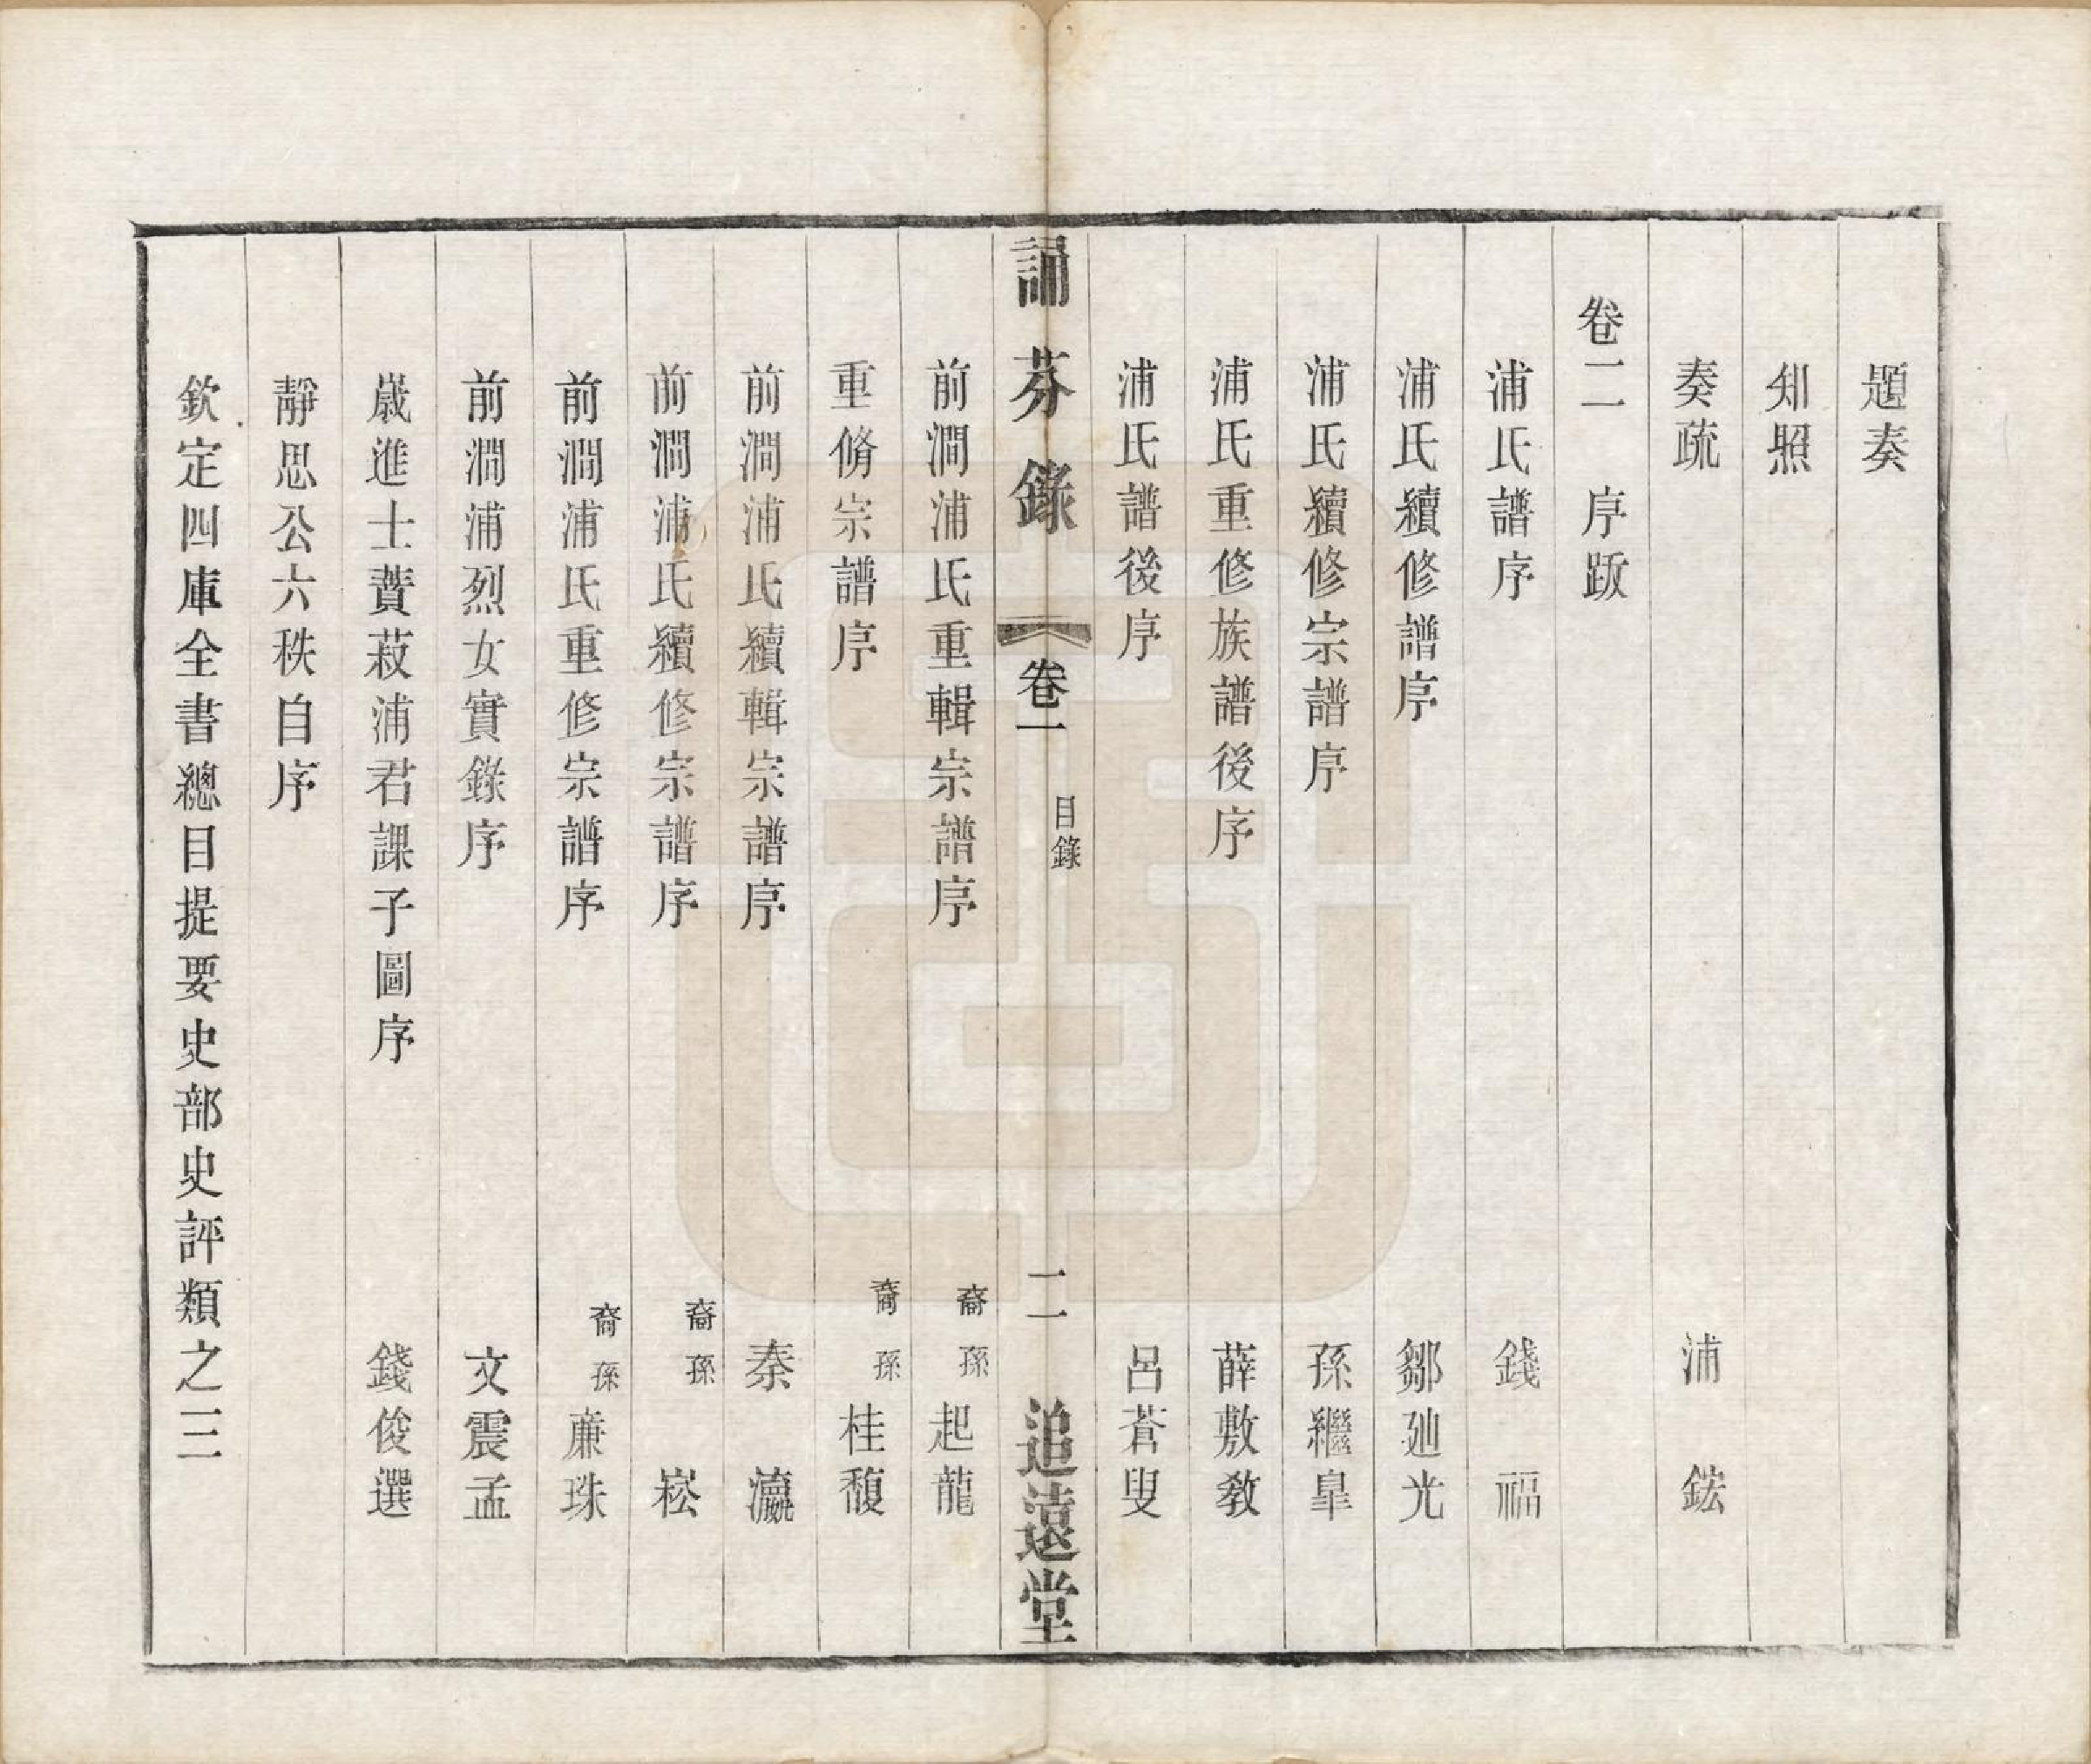 題奏
知照
奏疏 浦鋐
卷二 序跋
浦氏譜序 錢福
浦氏續修譜序 鄒廸光
浦氏續修宗譜序 孫繼皐
浦氏重修族譜後序 薛敷教
浦氏譜後序 呂蒼叟
誦芬錄 卷一 目錄 二 追遠堂
前澗浦氏重輯宗譜序 裔孫起龍
重脩宗譜序 裔孫桂馥
前澗浦氏續輯宗譜序 秦瀛
前澗浦氏續修宗譜序 裔孫崧
前澗浦氏重修宗譜序 裔孫亷珠
前澗浦烈女實錄序 文震孟
歲進士蕡菽浦君課子圖序 錢俊選
靜思公六秩自序
欽定四庫全書總目提要史部史評類之三